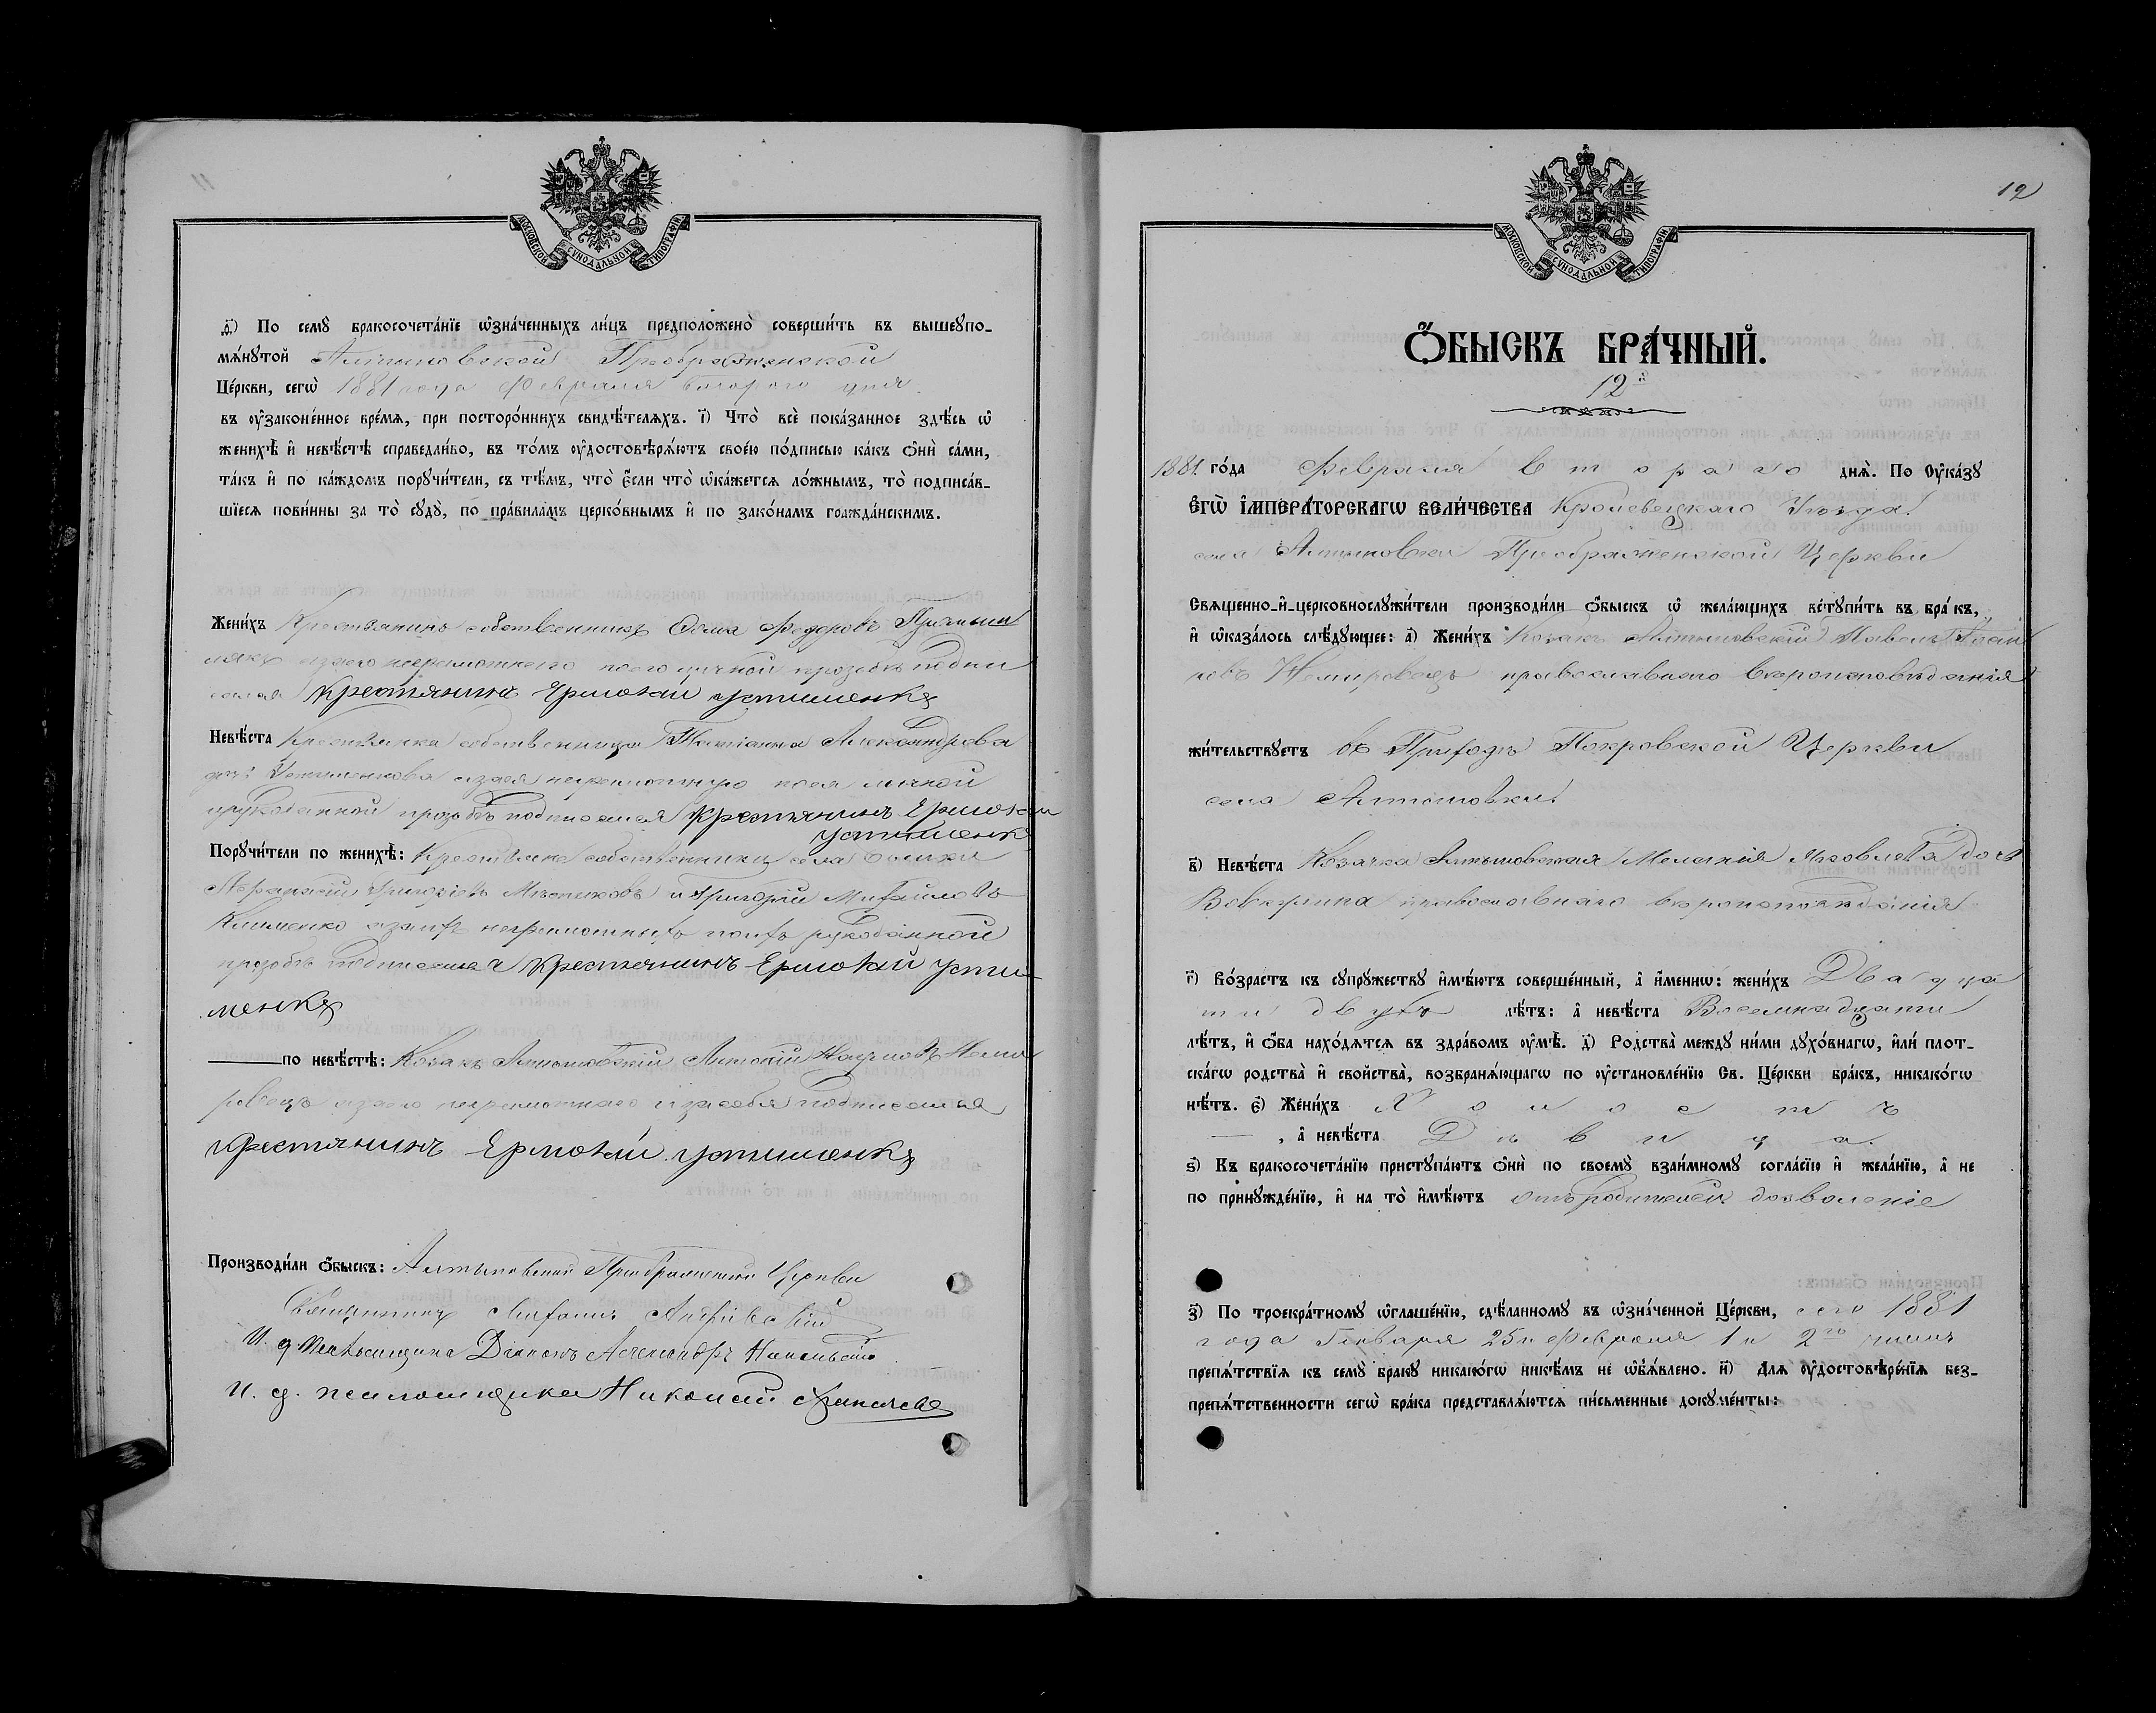 11
МОСКОВСКОЙ СѴНОДАЛЬНОЙ ТИПОГРАФІИ
д҃) По семꙋ̀ бракосочета́нїе ѡ҆зна́ченныхъ ли́цъ предположено̀ соверши́ть въ вышеꙋпо-
мѧ́нꙋтой Алтыновской Преображенской
Це́ркви, сегѡ̀ 1881 года Февраля второго дня
въ ѹ҆законе́нное вре́мѧ, при посторо́ннихъ свидѣ́телѧхъ. і҃) Что̀ всѐ пока́занное здѣ́сь ѡ҆
женихѣ̀ и҆ невѣ́стѣ справедли́во, въ то́мъ ѹ҆достовѣрѧ́ютъ свое́ю по́дписью ка́къ ѻ҆нѝ са́ми,
та́къ и҆ по ка́ждомъ порꙋчи́тели, съ тѣ́мъ, что̀ є҆́сли что̀ ѡ҆ка́жетсѧ ло́жнымъ, то̀ подписа́в-
шїесѧ пови́нны за то̀ сꙋдꙋ̀, по пра́виламъ церко́внымъ и҆ по зако́намъ гражда́нскимъ.
Жени́хъ Крестьянинъ собственникъ Ѳома Федоровъ
а за него неграмотного по его личной прозьбѣ подпи
сался Крестянинъ Ермолай Устименко
Невѣ́ста Крестьянка собственница Татіана Александрова
дочь Устименкова а за нея неграмотную по ея личной
ирукоданной прозьбѣ подписался Крестянинъ Ермолай
Устименко
Порꙋчи́тели по женихѣ̀: Крестьяне собственники села
Афанасій Григоріевъ и Григорій Михайловъ
Клименко а за ихъ неграмотныхъ поихъ рукоданной
прозьбѣ подписался Крестянинъ Ермолай Усти
менко
по невѣ́стѣ: Козакъ Алтыновскій Антоній Наумовъ Неми
ровецъ а за его неграмотнаго и за себя подписался
Крестянинъ Ермолай Устименко
Производи́ли ѻ҆́быскъ: Алтыновской Преображенской Церкви
Священникъ Андріевскій
И. д. Псаломщика Діаконъ Александръ
И. д. псаломщика Николай
12
МОСКОВСКОЙ СѴНОДАЛЬНОЙ ТИПОГРАФІИ
Ѻ҆́БЫСКЪ БРА́ЧНЫЙ.
12й
1881. го́да Февраля второго днѧ̀. По ѹ҆ка́зꙋ
Є҆ГѠ̀ И҆МПЕРА́ТОРСКАГѠ ВЕЛИ́ЧЕСТВА Кролевецкаго Уѣзда
села Алтыновки Преображенской Церкви
Свѧще́нно-и҆-церковнослꙋжи́тели производи́ли ѻ҆́быскъ ѡ҆ жела́ющихъ встꙋпи́ть въ бра́къ,
и҆ ѡ҆каза́лось слѣ́дꙋющее: а҃) Жени́хъ Козакъ Алтыновскій Павелъ
Немировецъ православнаго вѣроисповѣданія
жи́тельствꙋетъ въ Приходѣ Покровской Церкви
села Алтыновки
в҃) Невѣ́ста Козачка Алтыновская Меланія Яковлева дочь
православнаго вѣроисповѣданія
г҃) Во́зрастъ къ сꙋпрꙋ́жествꙋ и҆мѣ́ютъ соверше́нный, а҆ и҆́меннѡ: жени́хъ Двадца
ти двухъ лѣ́тъ: а҆ невѣ́ста Восемнадцати
лѣ́тъ, и҆ ѻ҆́ба нахо́дѧтсѧ въ здра́вомъ ѹ҆мѣ̀. д҃) Родства̀ междꙋ ни́ми дꙋхо́внагѡ, и҆лѝ плот-
ска́гѡ родства̀ и҆ свойства̀, возбранѧ́ющагѡ по ѹ҆становле́нїю Св. Це́ркви бра́къ, никако́гѡ
нѣ́тъ. є҃) Жени́хъ Холостъ
, а҆ невѣ́ста Дѣвица.
ѕ҃) Къ бракосочета́нїю пристꙋпа́ютъ ѻ҆нѝ по своемꙋ̀ взаи́мномꙋ согла́сїю и҆ жела́нїю, а҆ не
по принꙋжде́нїю, и҆ на то̀ и҆мѣ́ютъ отъ родителей дозволеніе
з҃) По троекра́тномꙋ ѡ҆глаше́нїю, сдѣ́ланномꙋ въ ѡ҆зна́ченной Це́ркви, сего 1881
года Генваря 25 и Февраля 1 и 2го чиселъ
препѧ́тствїѧ къ семꙋ̀ бракꙋ никако́гѡ никѣ́мъ не ѡ҆б̾ѧ́влено. и҃) Длѧ ѹ҆достовѣре́нїѧ без-
препѧ́тственности сегѡ̀ бра́ка представлѧ́ютсѧ пи́сьменные докꙋме́нты: